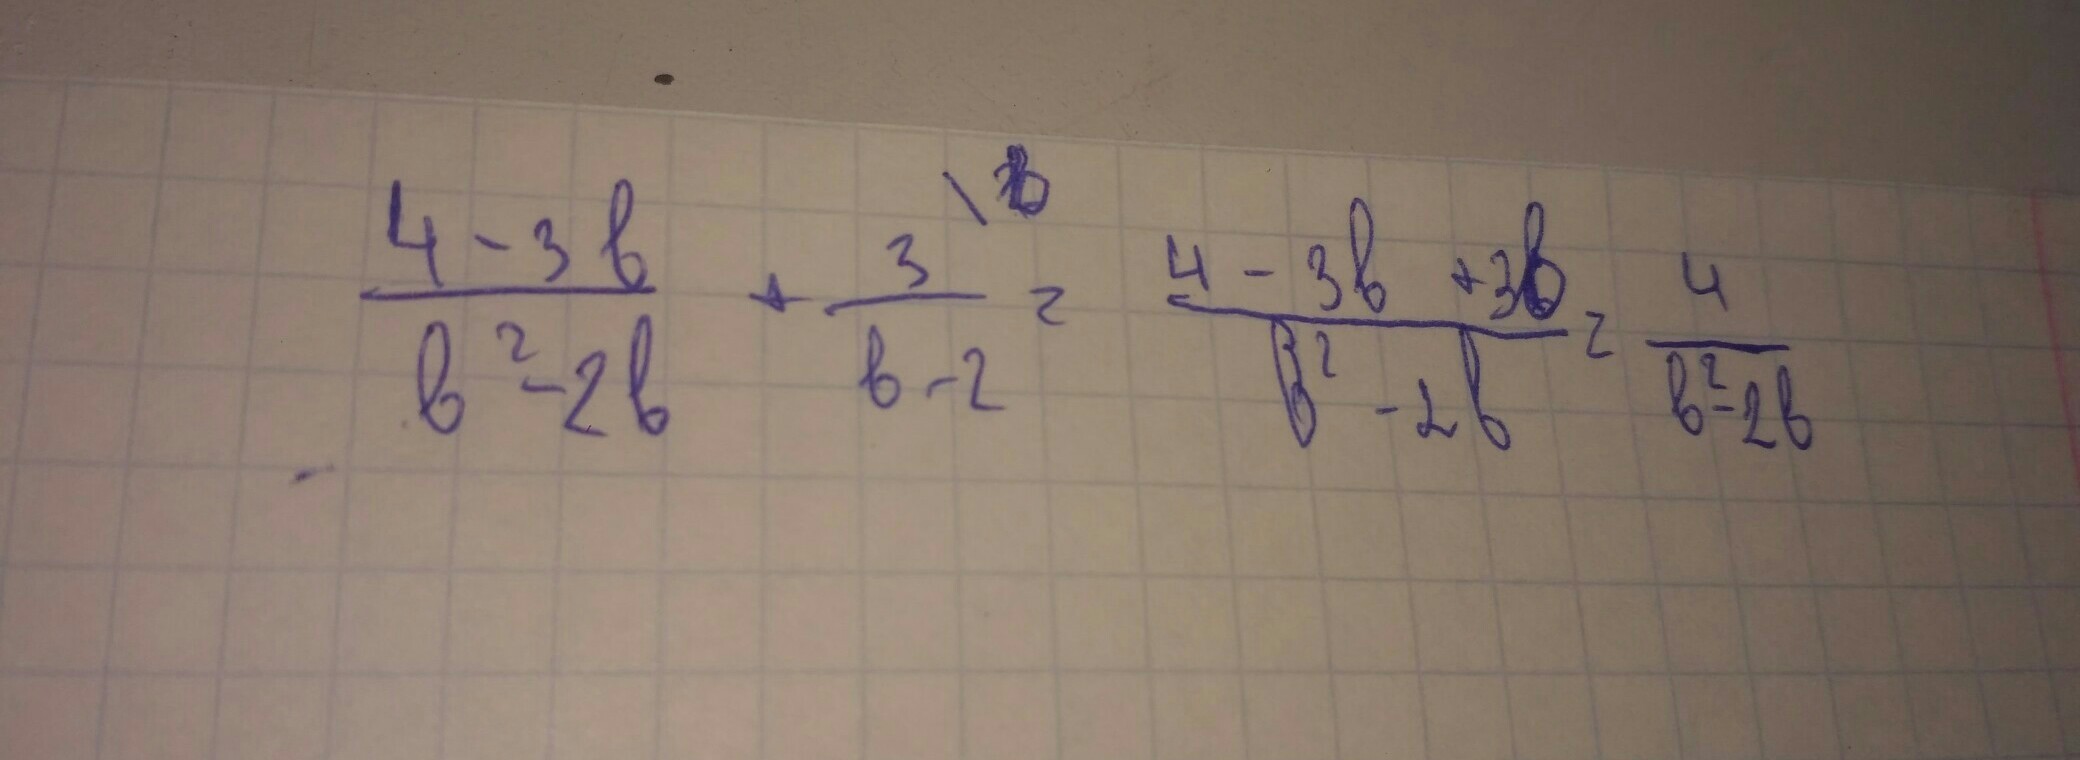 (4 - 3b)/(b² - 2b) + 3\b/(b - 2) = (4 - 3b + 3b)/(b² - 2b) = 4/(b² - 2b)